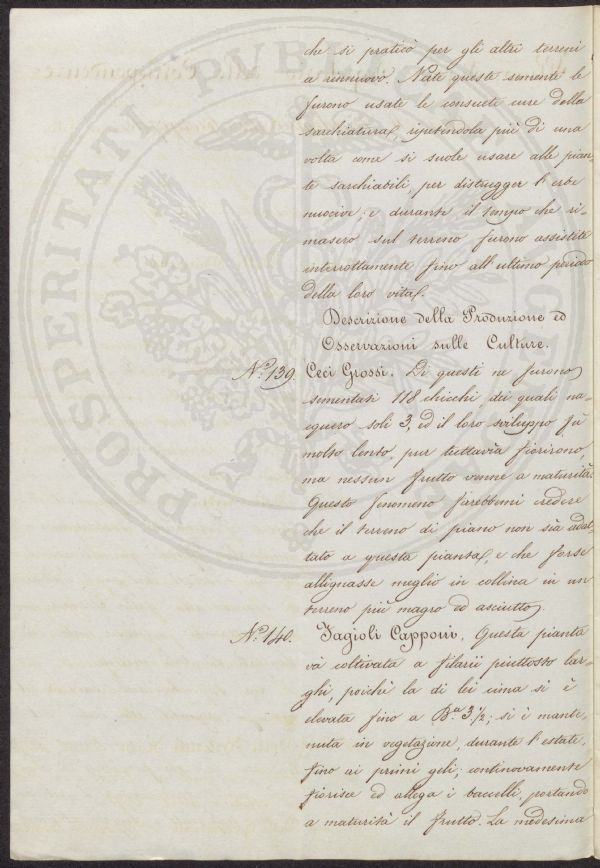 che si praticò per gli altri terreni
a rinnuovo. Nate queste semente le
furono usate le consuete cure della
sarchiatura, ripetindola più di una
volta come si suole usare alle pian-
te sarchiabili, per distrugger l'erbe
nuocive, e durante il tempo che ri-
masero sul terreno furono assistite
interrottamente fino all'ultimo periodo
della loro vita.
Descrizione della Produzione ed
Osservazioni sulle Culture.
N.º 139. Ceci Grossi. Di questi ne furono
sementati 118 chicchi, dei quali na-
cquero soli 3, ed il loro sviluppo fù
molto lento, pur tuttavia fiorirono,
ma nessun frutto venne a maturità.
Questo fenomeno farebbemi credere
che il terreno di piano non sia adat-
tato a questa pianta, e che forse
allignasse meglio in collina in un
terreno più magro ed asciutto.
N.º 140. Fagioli Capponi. Questa pianta
và coltivata a filarii piuttosto lar-
ghi, poichè la di lei cima si è
elevata fino a B.ª 3½; si è mante-
nuta in vegetazione, durante l'estate,
fino ai primi geli; continovamente
fiorisce ed allega i baccelli, portando
a maturità il frutto. La medesima
PROSPERITATI PUBLICAE